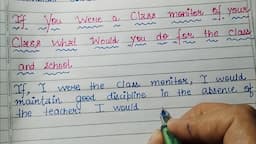 If you were a Class moniter of your
Class what would you do for the class
and school
If, I were the class moniter, I would
maintain good discipline in the absence of
the teacher. I would